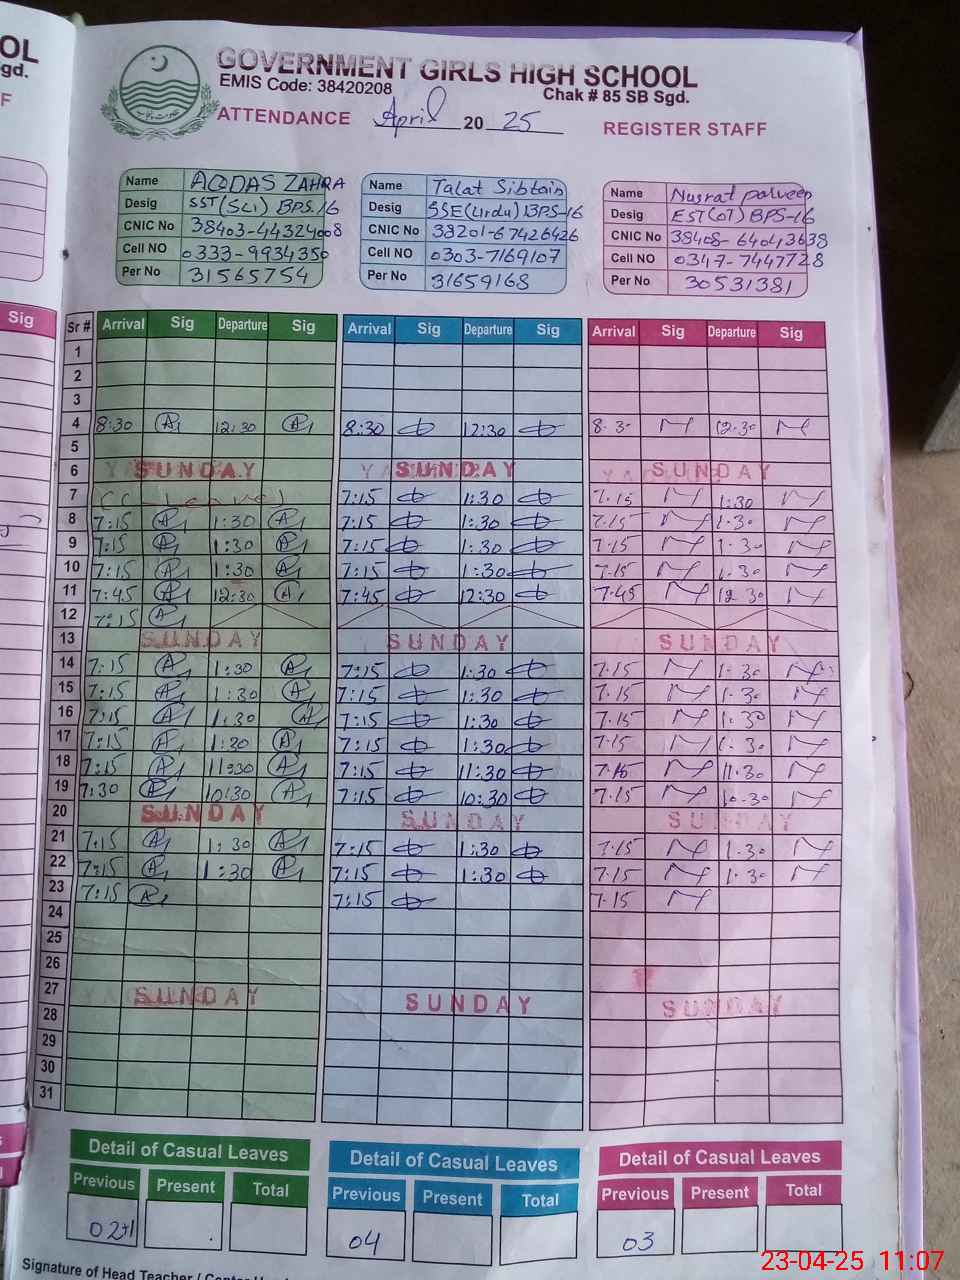 OL
gd.
F
GOVERNMENT GIRLS HIGH SCHOOL
EMIS Code: 38420208
Chak # 85 SB Sgd.
ATTENDANCE April 20 25 REGISTER STAFF
Name AQDAS ZAHRA
Desig SST(SCI) BPS.16
CNIC No 38403-44324008
Cell NO 0333-9934350
Per No 31565754
Name Talat Sibtain
Desig SSE(Urdu) BPS-16
CNIC No 38201-67426426
Cell NO 0303-7169107
Per No 31659168
Name Nusrat parveen
Desig EST(OT) BPS-16
CNIC No 38408-64043638
Cell NO 0347-7447728
Per No 30531381
Sig
Sr # Arrival Sig Departure Sig Arrival Sig Departure Sig Arrival Sig Departure Sig
1
2
3
4 8:30 12:30 8:30 12:30 8.30 12.30
5
6 SUNDAY SUNDAY SUNDAY
7 7:15 1:30 7.15 1:30
8 7:15 1:30 7:15 1:30 7.15 1.30
9 7:15 1:30 7:15 1:30 7.15 1.30
10 7:15 1:30 7:15 1:30 7.15 1.30
11 7:45 12:30 7:45 12:30 7.45 12.30
12 7:15
13 SUNDAY SUNDAY SUNDAY
14 7:15 1:30 7:15 1:30 7.15 1.30
15 7:15 1:30 7:15 1:30 7.15 1.30
16 7:15 1:30 7:15 1:30 7.15 1:30
17 7:15 1:30 7:15 1:30 7.15 1.30
18 7:15 11:30 7:15 11:30 7.15 11.30
19 7:30 10:30 7:15 10:30 7.15 10.30
20 SUNDAY SUNDAY SUNDAY
21 7:15 1:30 7:15 1:30 7.15 1.30
22 7:15 1:30 7:15 1:30 7.15 1.30
23 7:15 7:15 7.15
24
25
26
27 SUNDAY SUNDAY SUNDAY
28
29
30
31
Detail of Casual Leaves Detail of Casual Leaves Detail of Casual Leaves
Previous Present Total Previous Present Total Previous Present Total
02+1 04 03
Signature of Head Teacher /
23-04-25 11:07